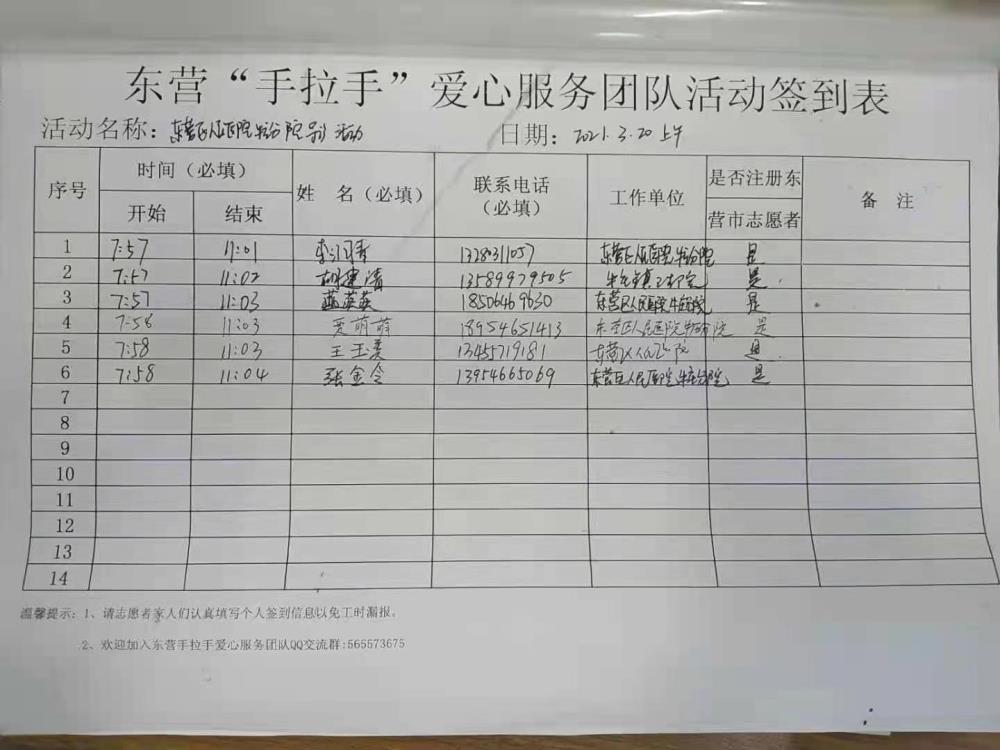 东营“手拉手”爱心服务团队活动签到表
活动名称：东营区人民医院牛分院 活动 日期：2021.3.20 上午
序号 时间（必填） 姓 名（必填） 联系电话（必填） 工作单位 是否注册东营市志愿者 备 注
开始 结束
1 7:57 11:01 1328311057 东营区人民医院牛分院 是
2 7:57 11:02 胡建清 13589979505 牛庄镇 院 是
3 7:57 11:03 英英 18506469630 东营区人民医院牛庄分院 是
4 7:58 11:03 爱萌萌 18954651413 东营区人民医院牛 院 是
5 7:58 11:03 王玉 13455719181 东营区人民医院 是
6 7:58 11:04 张金令 13954665069 东营区人民医院牛庄分院 是
7
8
9
10
11
12
13
14
温馨提示：1、请志愿者家人们认真填写个人签到信息以免工时漏报。
2、欢迎加入东营手拉手爱心服务团队QQ交流群:565573675